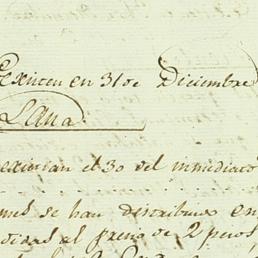 Existen en 31 de Diciembre
Lana.
existian el 30 del inmediato
se han distribuido en
al precio de 2 pesos